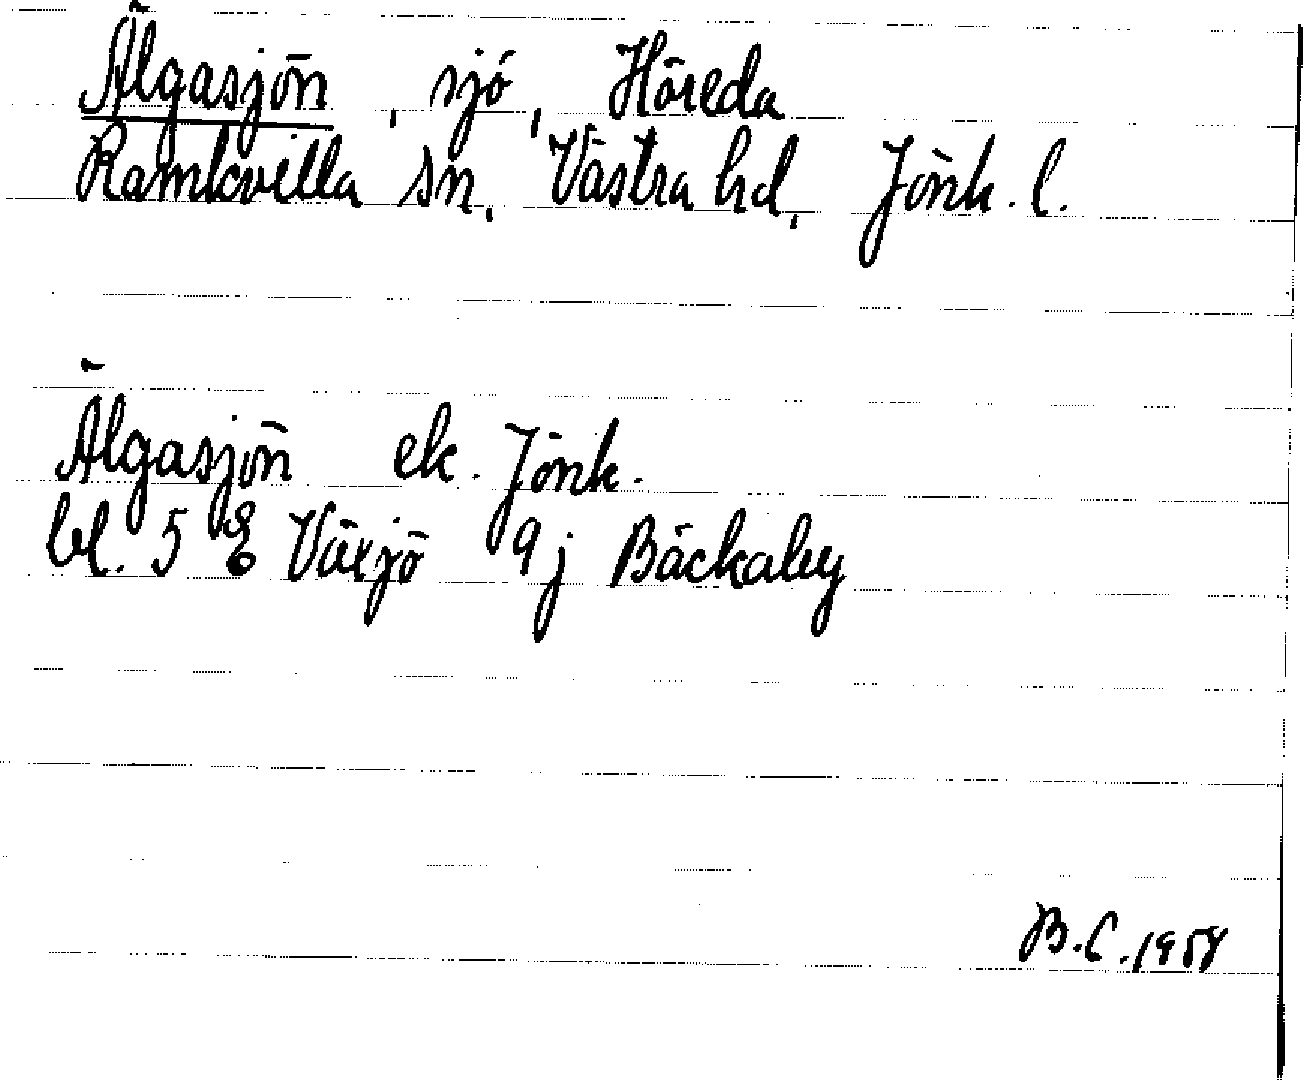 Älgasjön, sjö, Höreda
Ramkvilla sn, Västra hd, Jönk. l.
Älgasjön ek. Jönk.
bl. 5 E Växjö 9j Bäckaby
B.C. 1958